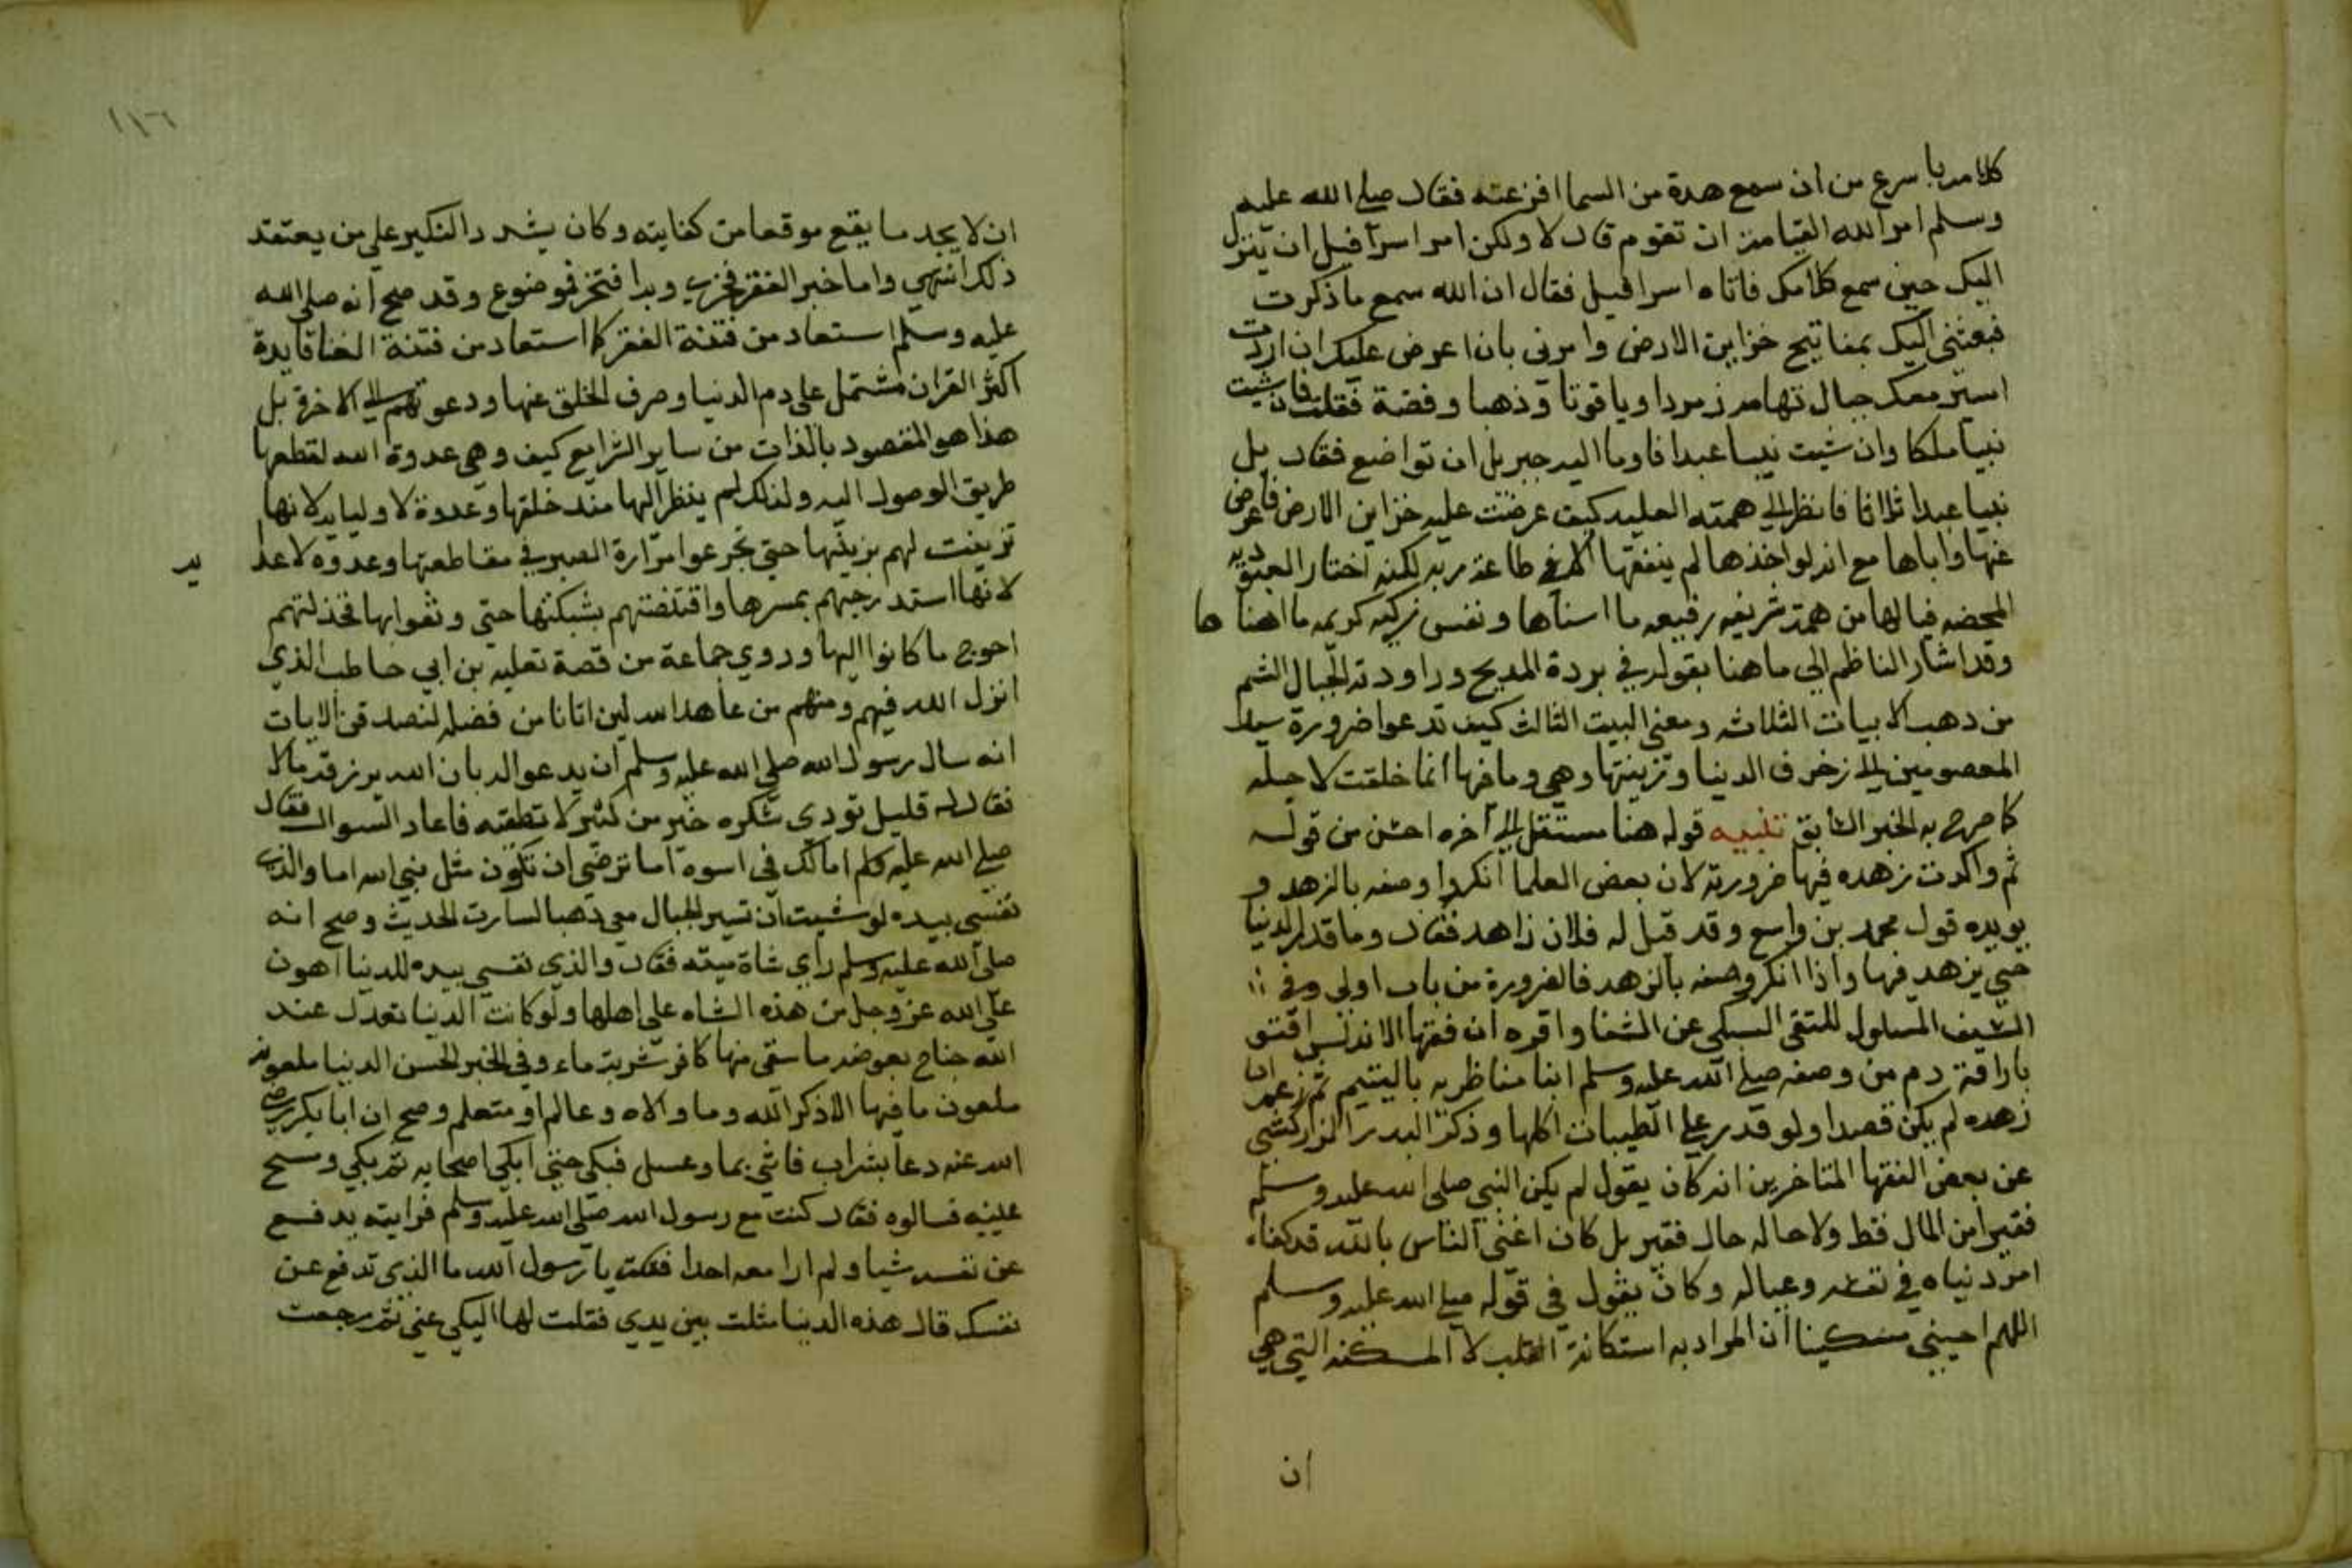 كلامه باسرع من ان سمع هدة من السما افزعته فقال صلي الله عليه
وسلم امر الله القيامة ان تقوم قال لا ولكن امر اسرافيل ان ينزل
اليك حين سمع كلامك فاتاه اسرافيل فقال ان الله سمع ما ذكرت
فبعثني اليك بمفاتيح خزاين الارض وامرني بان اعرض عليك ان اردت
اسير معك جبال تهامة زمردا وياقوتا وذهبا وفضة فقلت فان شيت
نبيا ملكا وان شيت نبيا عبدا فاوما اليه جبريل ان تواضع فقال بل
نبيا عبدا ثلاثا فانظر الي همته العليه كيف عرضت عليه خزاين الارض فاعرض
عنها واباها مع انه لو اخذها لم ينفقها الا في طاعة ربه لكنه اختار العبوديه
المحضه فيا لها من همة شريفه رفيعه ما اسناها ونفس زكيه كريمه ما اهناها
وقد اشار الناظم الي ما هنا بقوله في بردة المديح وراودته الجبال الشم
من ذهب الابيات الثلاثه ومعني البيت الثالث كيف تدعوا ضرورة سيد
المعصومين الي زخرف الدنيا وزينتها وهي وما فيها انما خلقت لاجله
كما صرح به الخبر السابق تنبيه قوله هنا مستقل الي آخره احسن من قوله
ثم واكدت زهده فيها ضرورته لان بعض العلما انكروا وصفه بالزهد و
يويده قول محمد بن واسع وقد قيل له فلان زاهد فقال وما قدر الدنيا
حتي يزهد فيها واذا انكر وصفه بالزهد فالضرورة من باب اولي وفي
السيف المسلول للتقي السبكي عن الشفا واقره ان فقها الاندلس افتو
باراقة دم من وصفه صلي الله عليه وسلم اثنا مناظريه باليتيم ثم زعم ان
زهده لم يكن قصدا ولو قدر علي الطيبات اكلها وذكر البدر الزركشي
عن بعض الفقها المتاخرين انه كان يقول لم يكن النبي صلي الله عليه وسلم
فقيرا من المال فقط ولا حاله حال فقير بل كان اغني الناس بالله قد كفاه
امر دنياه في نفسه وعياله وكان يقول في قوله صلي الله عليه وسلم
اللهم احيني مسكينا ان المراد به استكانة القلب لا المسكنه التي هي
ان
١١٦
ان لا يجد ما يقع موقعا من كفايته وكان يشدد النكير علي من يعتقد
ذلك انتهي واما خبر الفقر فخري وبه افتخر فموضوع وقد صح انه صلي الله
عليه وسلم استعاد من فتنة الفقر كما استعاد من فتنة الغنا فايدة
اكثر القران مشتمل علي دم الدنيا وصرف الخلق عنها ودعوتهم الي الاخرة بل
هذا هو المقصود بالذات من ساير الشرايع كيف وهي عدوة الله لقطعها
طريق الوصول اليه ولذلك لم ينظر اليها منذ خلقها وعدوة لاوليايه لانها
تزينت لهم بزينتها حتي تجرعوا مرارة الصبر في مقاطعتها وعدوه لاعدا
يه
لانها استدرجتهم بمسرها واقتنصتهم بشبكتها حتي وثقوا بها فخذلتهم
احوج ما كانوا اليها وروي جماعة من قصة ثعلبه بن ابي حاطب الذي
انزل الله فيهم ومنهم من عاهد الله لين اتانا من فضله لنصدقن الايات
انه سال رسول الله صلي الله عليه وسلم ان يدعو الله بان الله يرزقه مالا
فقال له قليل تودي شكره خير من كثير لا تطقته فاعاد السوال فقال
صلي الله عليه وسلم اما لك في اسوة اما ترضي ان تكون مثل نبي الله اما والذي
نفسي بيده لو شيت ان تسير الجبال معي ذهبا لسارت الحديث وصح انه
صلي الله عليه وسلم راي شاة ميته فقال والذي نفسي بيده للدنيا اهون
علي الله عز وجل من هذه الشاه علي اهلها ولو كانت الدنيا تعدل عند
الله جناح بعوضه ما سقي منها كافر شربة ماء وفي الخبر الحسن الدنيا ملعونه
ملعون ما فيها الا ذكر الله وما والاه وعالم او متعلم وصح ان ابا بكر رضي
الله عنه دعا بشراب فاتي بما وعسل فبكي حتي ابكي اصحابه ثم بكي ومسح
عينيه فسالوه فقال كنت مع رسول الله صلي الله عليه وسلم فرايته يدفع
عن نفسه شيا ولم ارا معه احدا فقلت يا رسول الله ما الذي تدفع عن
نفسك قال هذه الدنيا مثلت بين يدي فقلت لها اليكي عني ثم رجعت